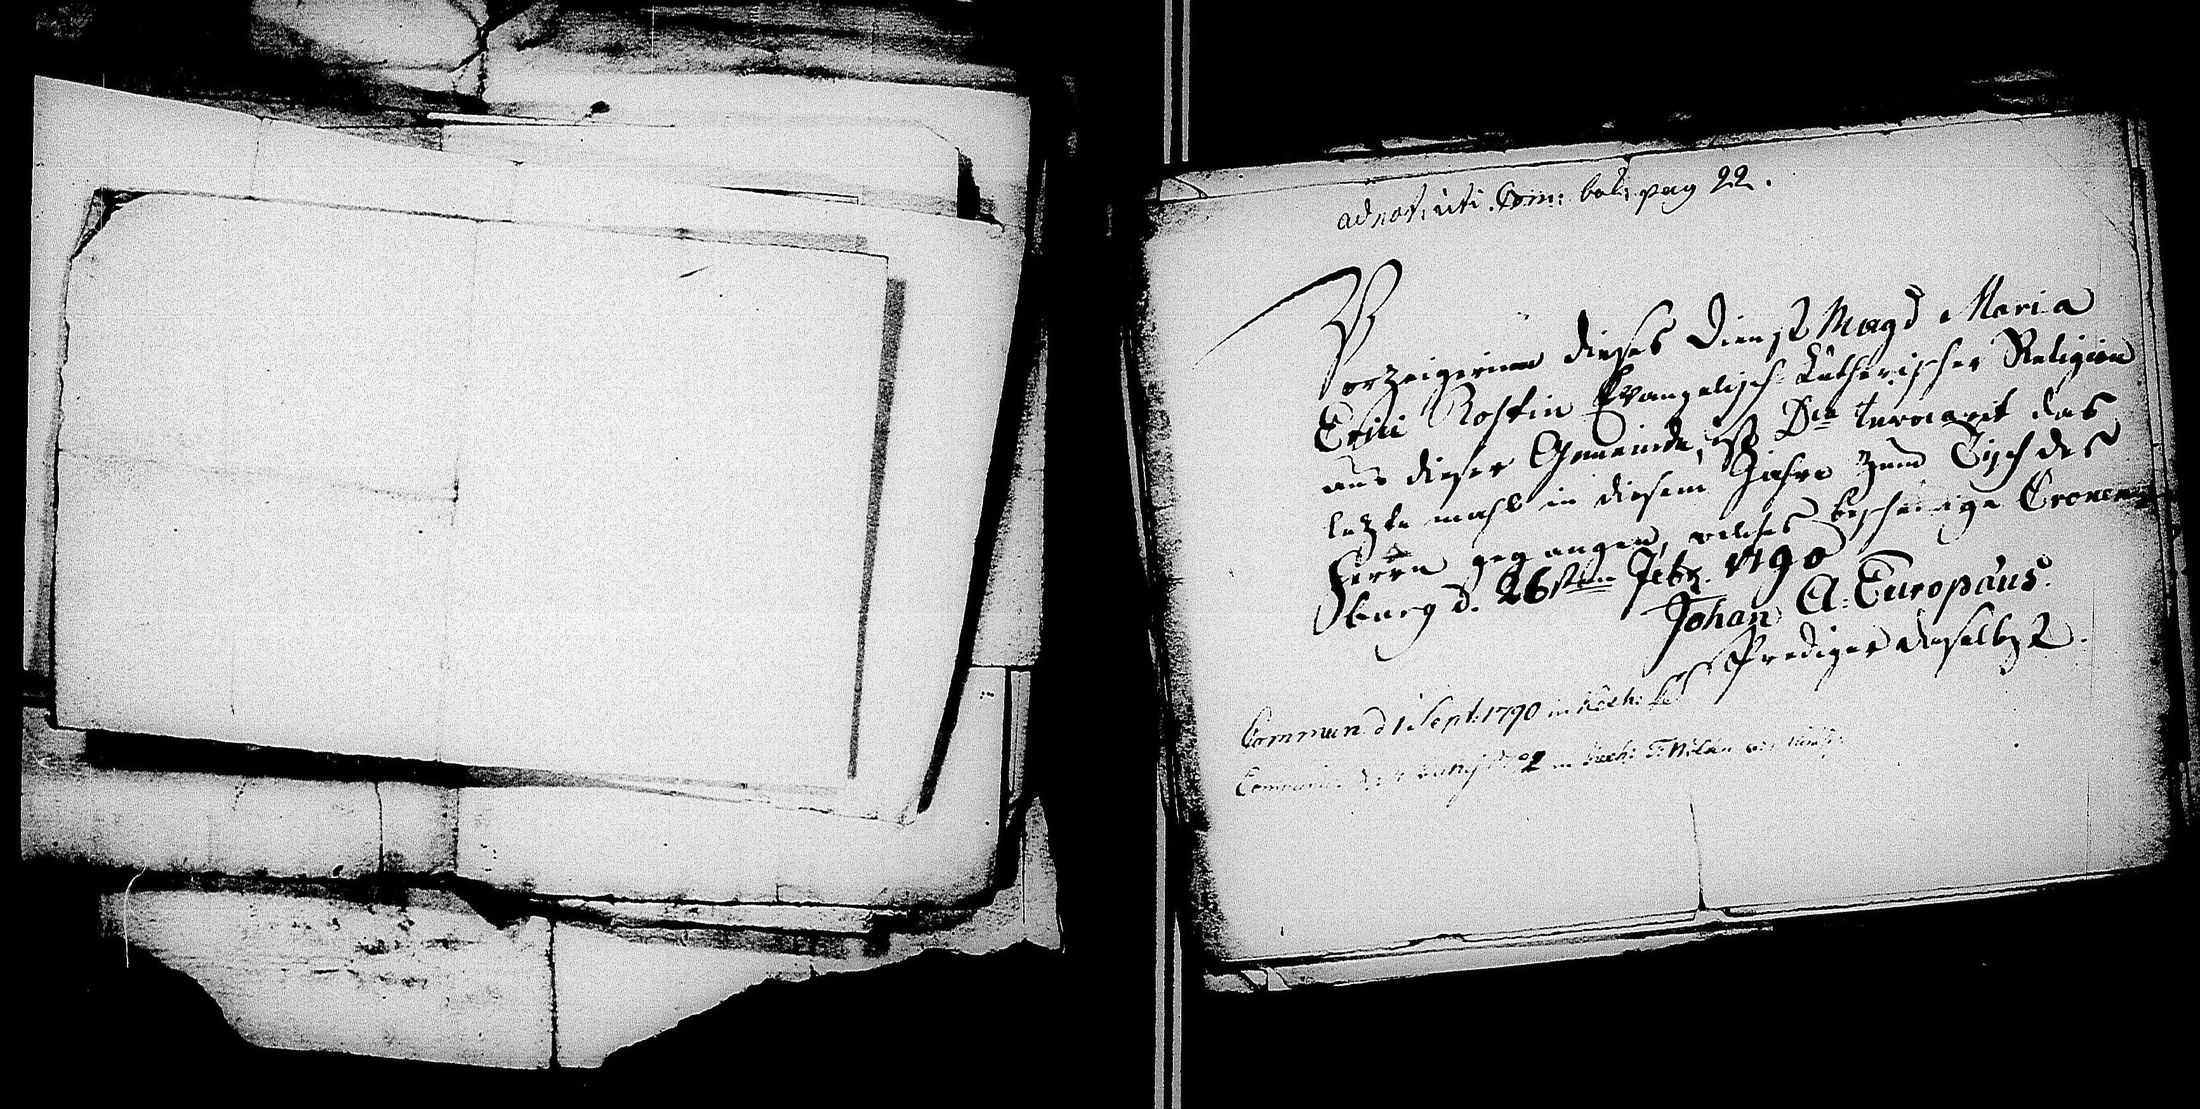 adnot: uti Com: bok: pag 22.
Vorzeigerinn dieses Dienst Magd Maria
Erici Tochter Evangelisch-Lutherischer Religion
aus dieser Gemeinde, ist das
letzte mahl in diesem Jahre zum Tisch des
Herrn gegangen, welches bescheinige Cronen-
burg d. 26sten Febr. 1790
Johan A: Europäus.
Prediger daselbst.
Commun. d 1 Sept: 1790 in
Commun. in